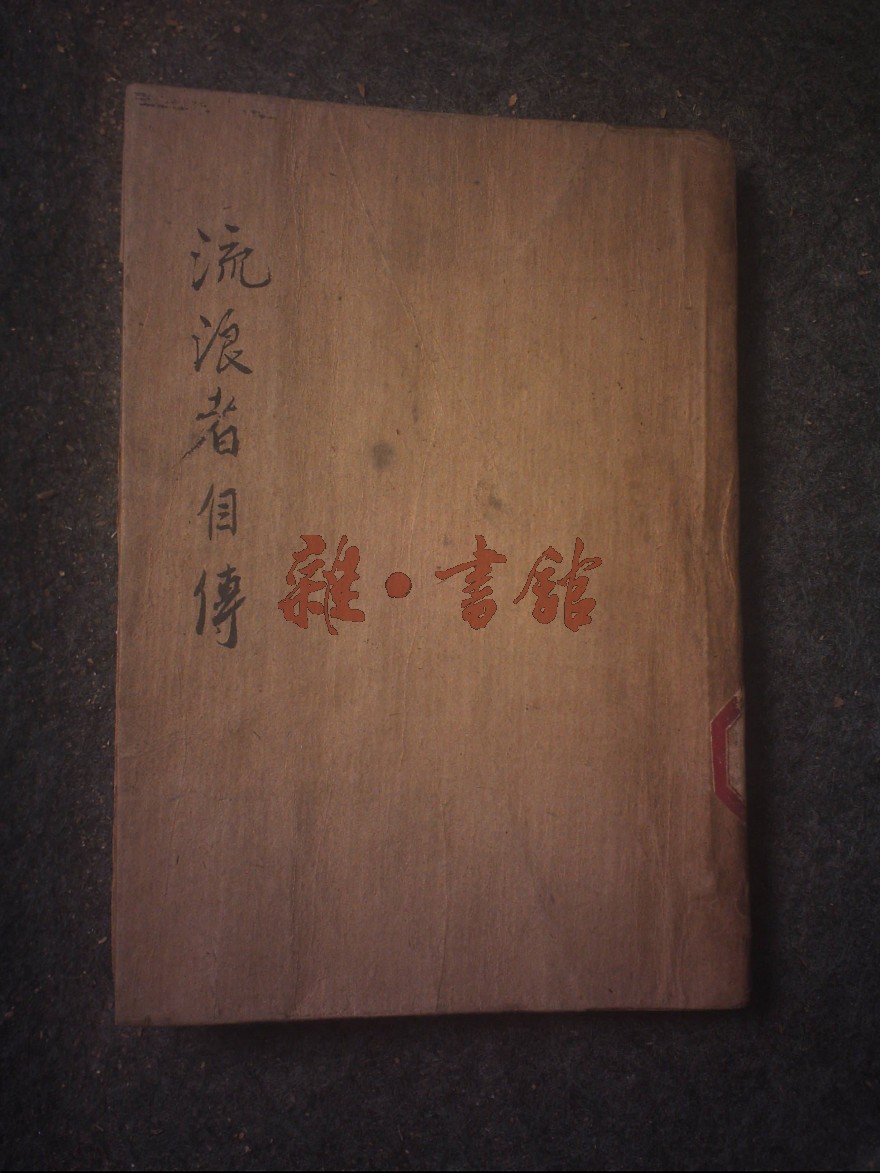 流浪者自傳
雜·書館